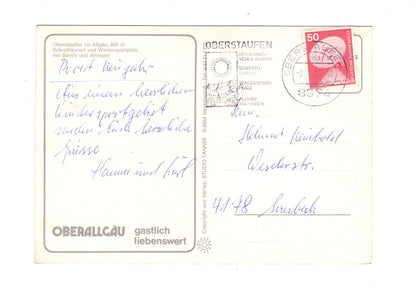 Oberstaufen im Allgäu, 800 m
Schrothkurort und Wintersportplatz
mit Säntis und Altmann
Prosit Neujahr
Aus einem herrlichen
Wintersportgebiet
senden Euch herzliche
Grüsse
Hanne und Karl
OBERALLGÄU gastlich
liebenswert
Copyright und Verlag: STUDIO TANNER
OBERSTAUFEN
HEILKLIMATI-
SCHER KURORT
SCHROTH-
KURORT
WINTERSPORT-
PLATZ
ALLGÄU
50
OBERSTAUFEN
Fam.
Helmut
Weselerstr.
4178 Sonsbeck